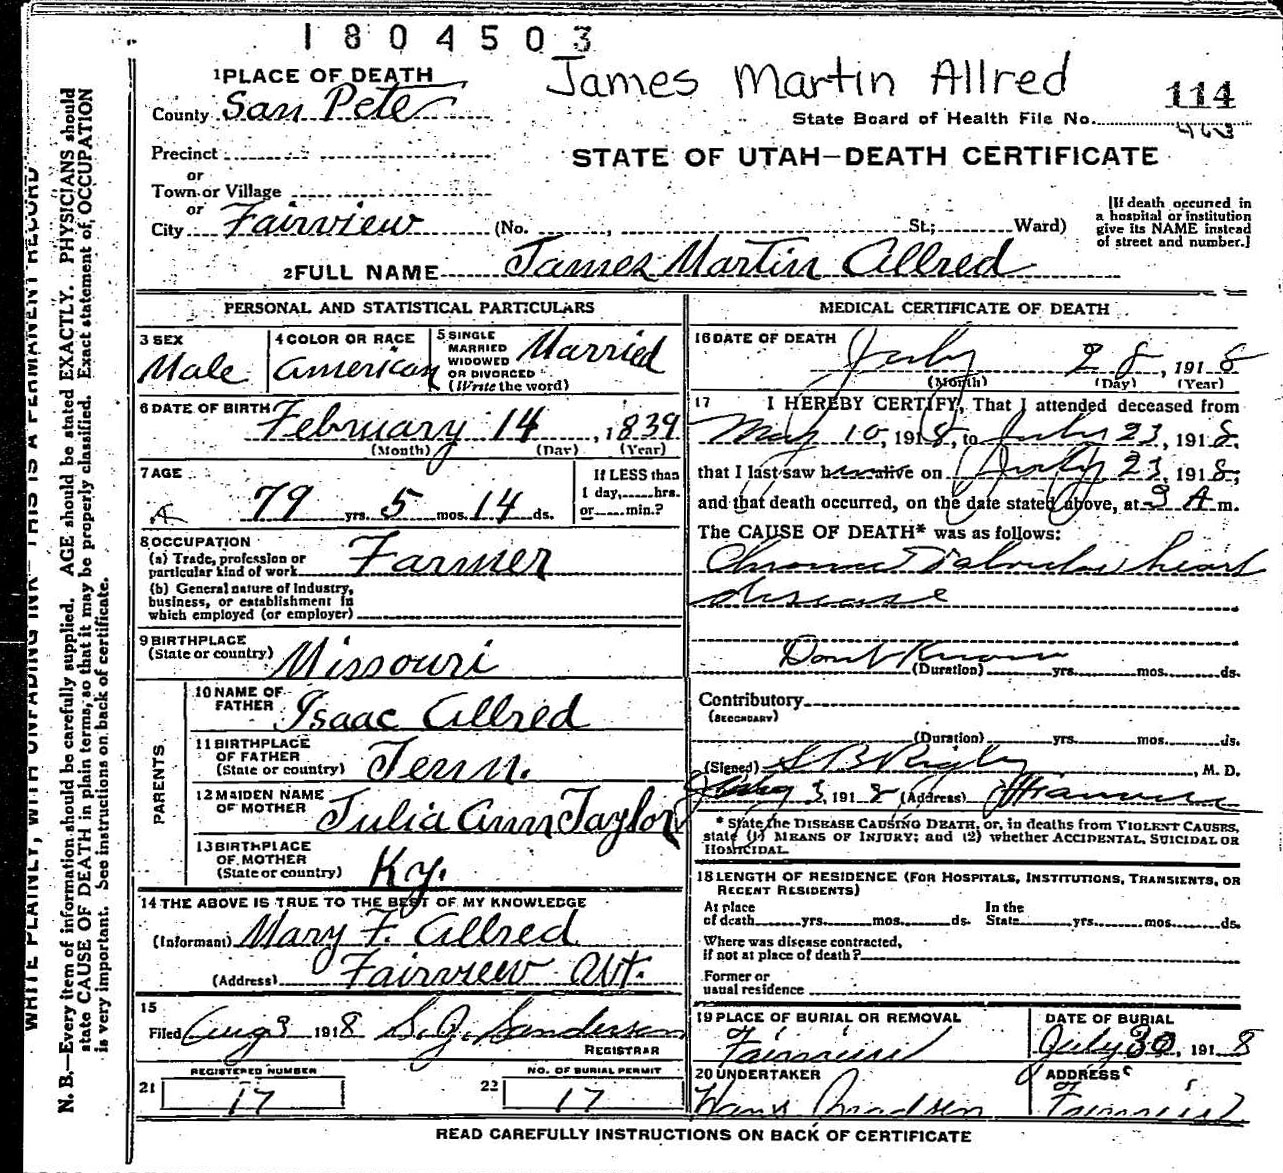 1804503
James Martin Allred
114
State Board of Health File No. 463
STATE OF UTAH—DEATH CERTIFICATE
1 PLACE OF DEATH
County San Pete
Precinct
or
Town or Village
or
City Fairview (No. , St.; Ward)
[If death occurred in
a hospital or institution
give its NAME instead
of street and number.]
2 FULL NAME James Martin Allred
PERSONAL AND STATISTICAL PARTICULARS
3 SEX
Male
4 COLOR OR RACE
American
5 SINGLE
MARRIED
WIDOWED
OR DIVORCED
(Write the word)
Married
6 DATE OF BIRTH
February 14, 1839
(Month) (Day) (Year)
7 AGE
79 yrs. 5 mos. 14 ds.
If LESS than
1 day, hrs.
or min.?
8 OCCUPATION
(a) Trade, profession or
particular kind of work Farmer
(b) General nature of industry,
business, or establishment in
which employed (or employer)
9 BIRTHPLACE
(State or country) Missouri
PARENTS
10 NAME OF
FATHER Isaac Allred
11 BIRTHPLACE
OF FATHER
(State or country) Tenn.
12 MAIDEN NAME
OF MOTHER Julia Ann Taylor
13 BIRTHPLACE
OF MOTHER
(State or country) Ky.
14 THE ABOVE IS TRUE TO THE BEST OF MY KNOWLEDGE
(Informant) Mary F. Allred
(Address) Fairview Ut.
15
Filed Aug 3 1918 S. J. Sanderson
REGISTRAR
REGISTERED NUMBER
21 17
NO. OF BURIAL PERMIT
22 17
MEDICAL CERTIFICATE OF DEATH
16 DATE OF DEATH
July 28, 1918
(Month) (Day) (Year)
17 I HEREBY CERTIFY, That I attended deceased from
May 10, 1918, to July 23, 1918,
that I last saw him alive on July 23, 1918,
and that death occurred, on the date stated above, at 9 A m.
The CAUSE OF DEATH* was as follows:
Chronic Valvular heart
disease
Dont Know
(Duration) yrs. mos. ds.
Contributory
(SECONDARY)
(Duration) yrs. mos. ds.
(Signed) S B Rigby, M. D.
3, 1918 (Address) Fairview
* State the DISEASE CAUSING DEATH, or, in deaths from VIOLENT CAUSES,
state (1) MEANS OF INJURY; and (2) whether ACCIDENTAL, SUICIDAL OR
HOMICIDAL.
18 LENGTH OF RESIDENCE (FOR HOSPITALS, INSTITUTIONS, TRANSIENTS, OR
RECENT RESIDENTS)
At place
of death yrs. mos. ds.
In the
State yrs. mos. ds.
Where was disease contracted,
if not at place of death?
Former or
usual residence
19 PLACE OF BURIAL OR REMOVAL
Fairview
DATE OF BURIAL
July 30, 1918
20 UNDERTAKER
Hans
ADDRESS
Fairview
READ CAREFULLY INSTRUCTIONS ON BACK OF CERTIFICATE
WRITE PLAINLY, WITH UNFADING INK—THIS IS A PERMANENT RECORD
N. B.—Every item of information should be carefully supplied. AGE should be stated EXACTLY. PHYSICIANS should
state CAUSE OF DEATH in plain terms, so that it may be properly classified. Exact statement of OCCUPATION
is very important. See instructions on back of certificate.